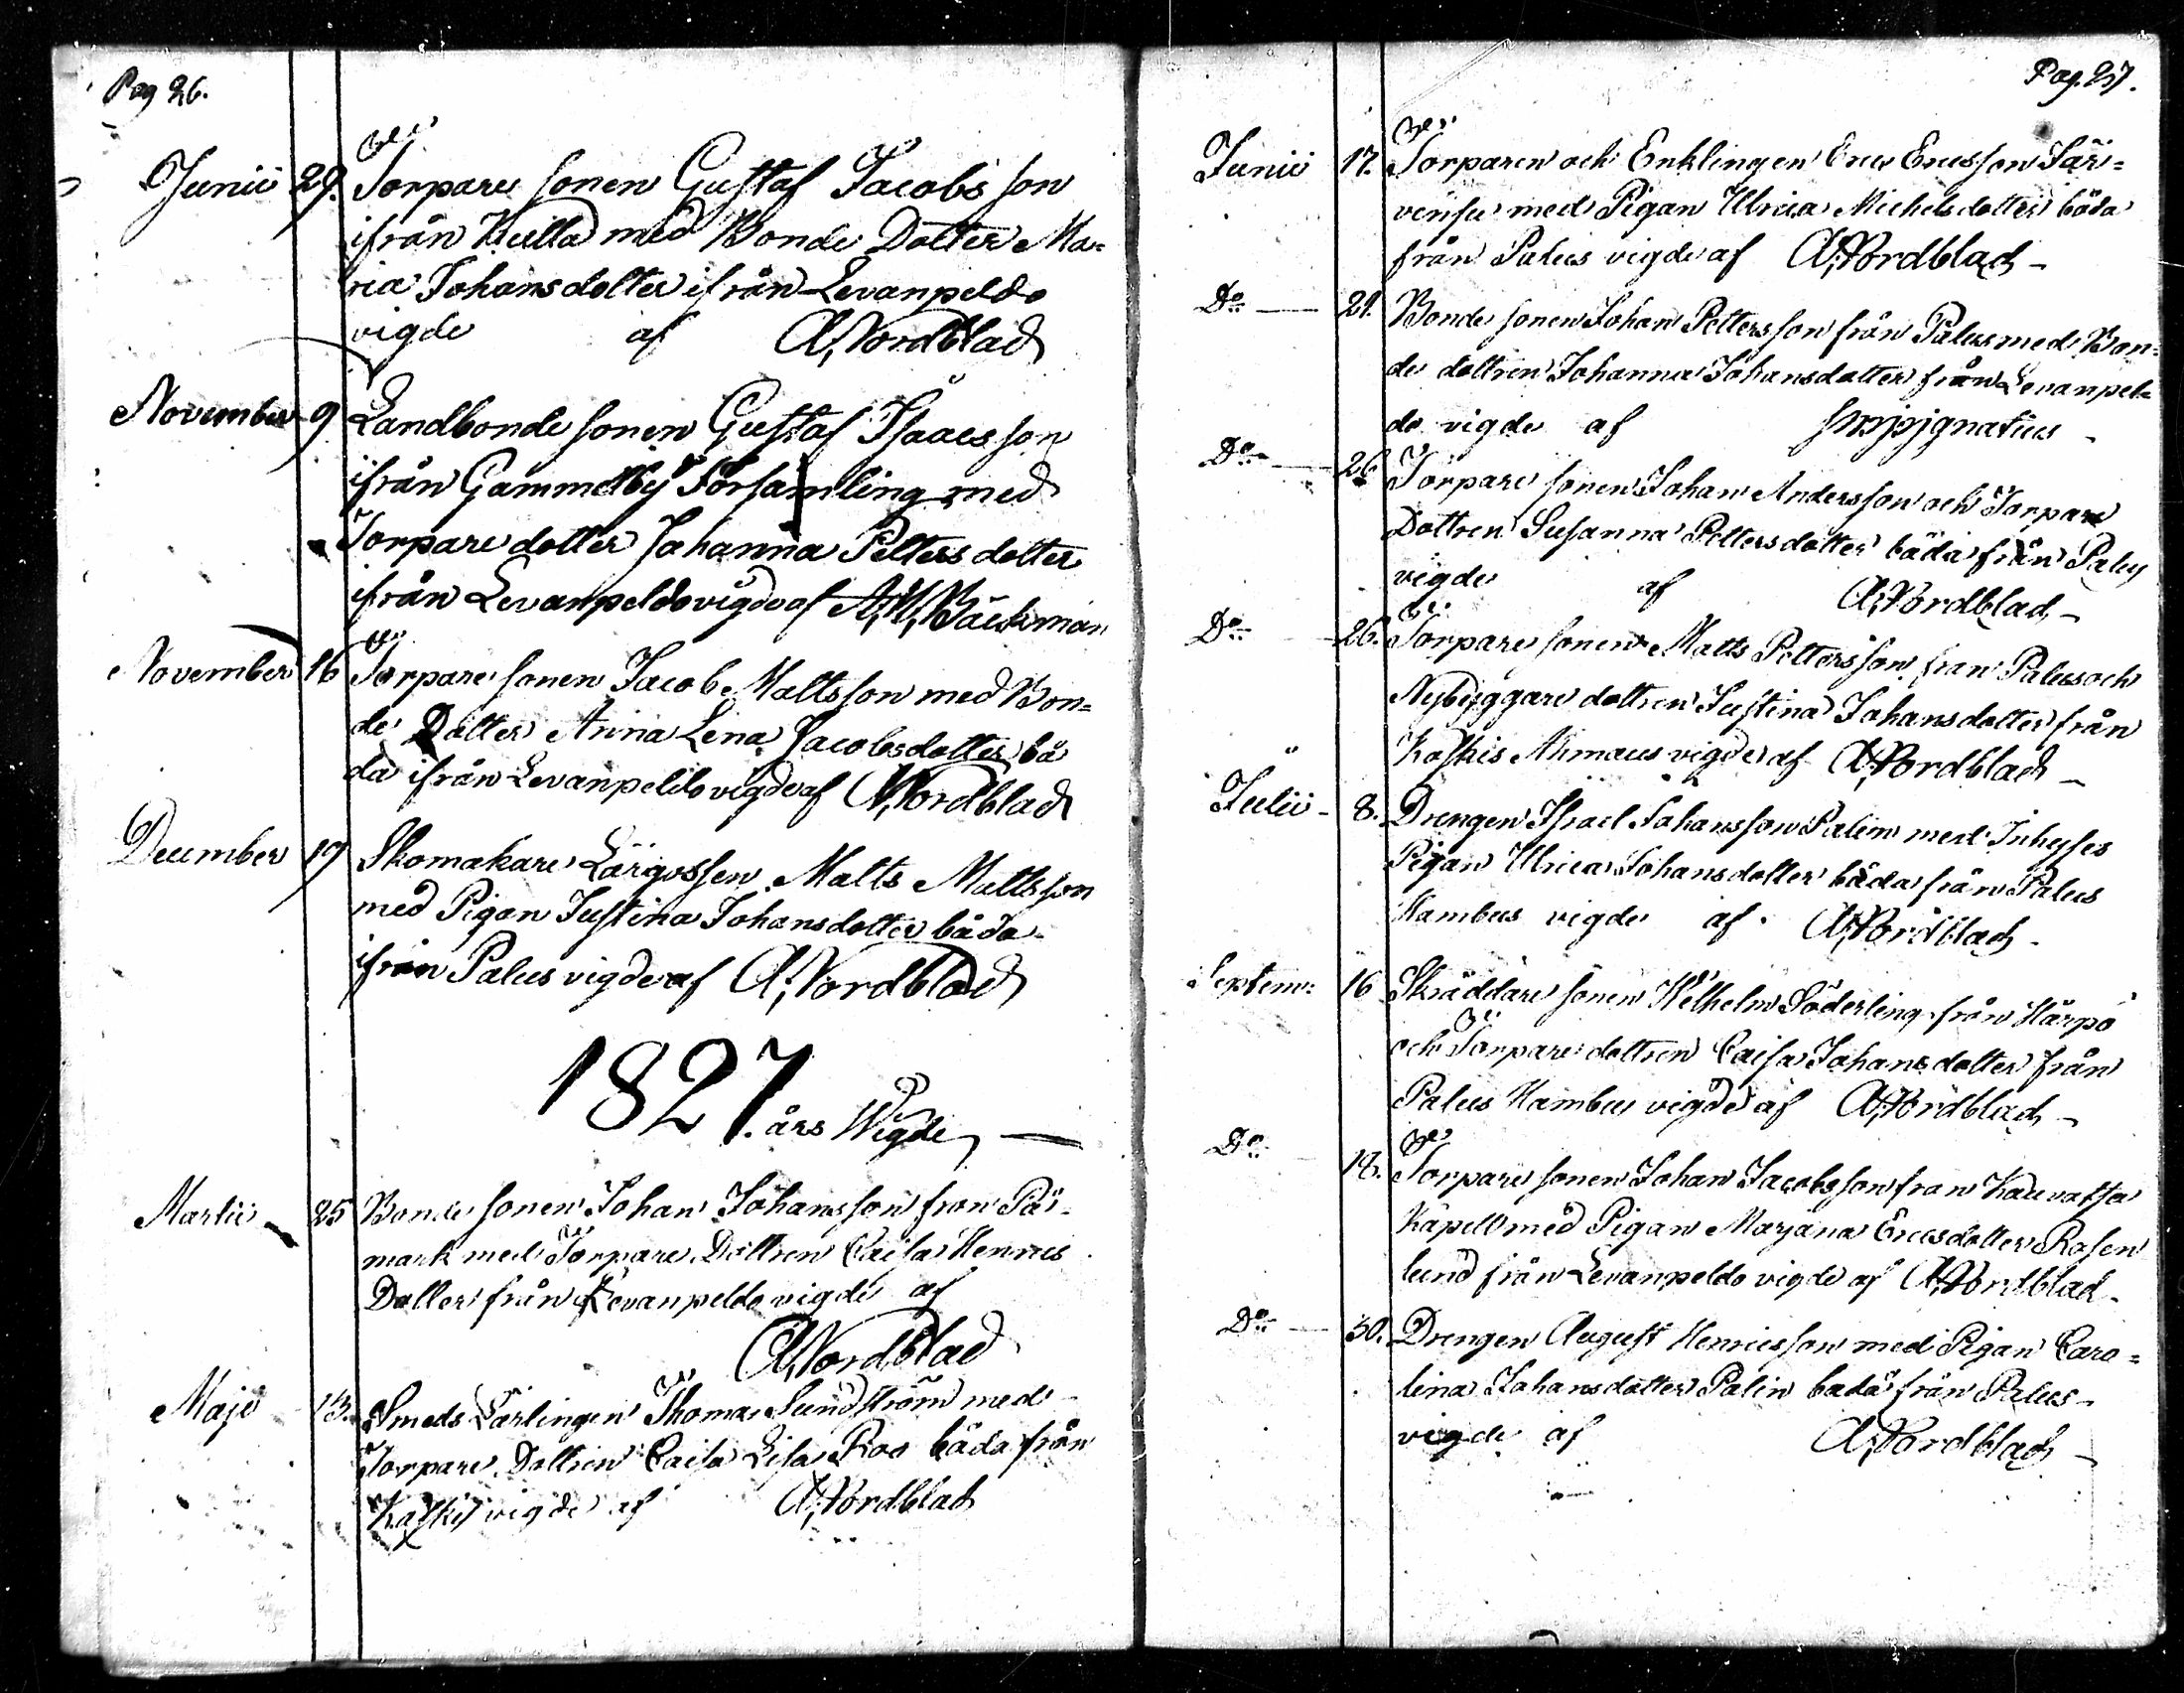 Pag 26.
Junii 29. Torpare sonen Gustaf Jacobsson
ifrån Kulla med Bonde Dotter Ma=
ria Johansdotter ifrån Levanpeldo
vigde af A; Nordblad
November 9 Landbonde sonen Gustaf Isaacsson
ifrån Gammelby Församling med
Torpare dotter Johanna Petters dotter
ifrån Levanpeldo vigde af A; W; Bäckman
November 16 Torpare sonen Jacob Mattsson med Bon=
de Dotter Anna Lena Jacobsdotter bå
da ifrån Levanpeldo vigde af A; Nordblad
December 17 Skomakare Lärgossen Matts Mattsson
med Pigan Justina Johansdotter båda
ifrån Palus vigde af A; Nordblad
1827.
års Wigde
Martii 25 Bonde sonen Johan Johansson från Pår=
mark med Torpare Dottren Caisa Henrics
Dotter från Levanpeldo vigde af
A; Nordblad
Maji 13. Smeds Lärlingen Thomas Sundström med
Torpare Dottren Caisa Lisa Roo båda från
Kaskis vigde af A; Nordblad
Pag. 27.
Junii 17. Torparen och Enklingen Eric Ericsson Jär=
vensu med Pigan Ulrica Michelsdotter båda
från Palus vigde af A; Nordblad
Do 21. Bonde sonen Johan Pettersson från Palus med Bon=
de dottren Johanna Johansdotter från Levanpel=
do vigde af
Do 26 Torpare sonen Johan Andersson och Torpare
Dottren Susanna Pettersdotter båda från Palus
vigde af A; Nordblad
Do 26. Torpare sonen Matts Pettersson från Palus och
Nybyggare dottren Justina Johansdotter från
Kaskis Ahmaus vigde af A; Nordblad
Julii 8. Drengen Israel Johansson Palin med Inhyses
Pigan Ulrica Johansdotter båda från Palus
Kambus vigde af A; Nordblad
Septem: 16 Skräddare sonen Wilhelm Söderling från Härpö
och Torpare dottren Caisa Johansdotter från
Palus Kambus vigde af A; Nordblad
Do 18. Torpare sonen Johan Jacobsson från Kauvatsa
Kapell med Pigan Marjana Ericsdotter Rosen
lund från Levanpeldo vigde af A; Nordblad
Do 30. Drengen August Henricsson med Pigan Caro=
lina Johansdotter Palin båda från Palus
vigde af A; Nordblad